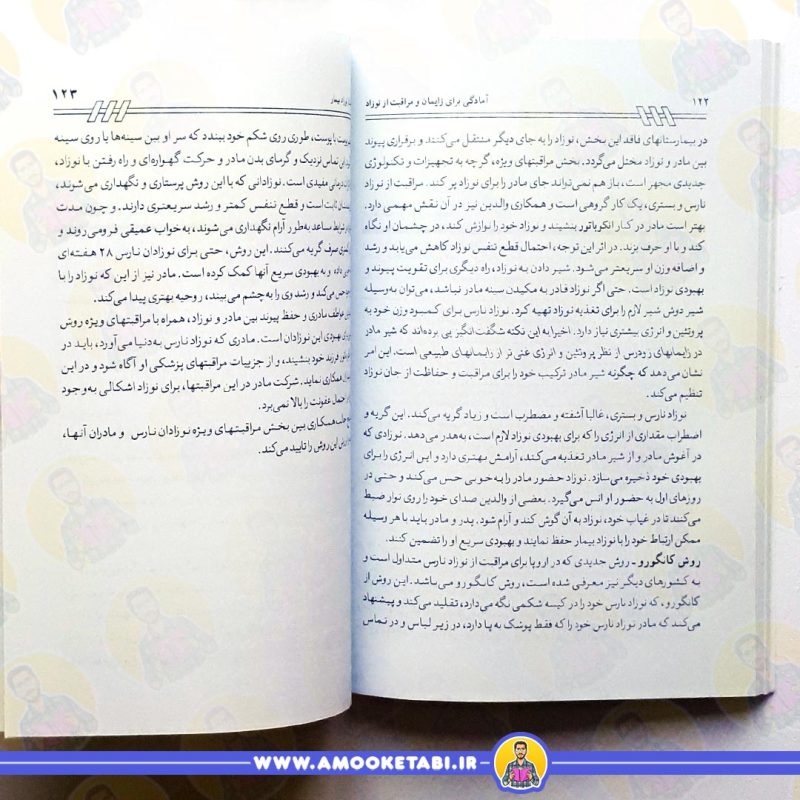 ۱۲۲
آمادگی برای زایمان و مراقبت از نوزاد
در بیمارستانهای فاقد این بخش، نوزاد را به جای دیگر منتقل می‌کنند و برقراری پیوند
بین مادر و نوزاد مختل می‌گردد. بخش مراقبتهای ویژه، گرچه به تجهیزات و تکنولوژی
جدیدی مجهز است، باز هم نمی‌تواند جای مادر را برای نوزاد پر کند. مراقبت از نوزاد
نارس و بستری، یک کار گروهی است و همکاری والدین نیز در آن نقش مهمی دارد.
بهتر است مادر در کنار انکوباتور بنشیند و نوزاد خود را نوازش کند، در چشمان او نگاه
کند و با او حرف بزند. در اثر این توجه، احتمال قطع تنفس نوزاد کاهش می‌یابد و رشد
و اضافه وزن او سریعتر می‌شود. شیر دادن به نوزاد، راه دیگری برای تقویت پیوند و
بهبودی نوزاد است. حتی اگر نوزاد قادر به مکیدن سینه مادر نباشد، می‌توان به‌وسیله
شیر دوش شیر لازم را برای تغذیه نوزاد تهیه کرد. نوزاد نارس برای کمبود وزن خود به
پروتئین و انرژی بیشتری نیاز دارد. اخیرا به این نکته شگفت‌انگیز پی برده‌اند که شیر مادر
در زایمانهای زودرس از نظر پروتئین و انرژی غنی تر از زایمانهای طبیعی است. این امر
نشان می‌دهد که چگونه شیر مادر ترکیب خود را برای مراقبت و حفاظت از جان نوزاد
تنظیم می‌کند.
نوزاد نارس و بستری، غالبا آشفته و مضطرب است و زیاد گریه می‌کند. این گریه و
اضطراب مقداری از انرژی را که برای بهبودی نوزاد لازم است، به‌هدر می‌دهد. نوزادی که
در آغوش مادر و از شیر مادر تغذیه می‌کند، آرامش بهتری دارد و این انرژی را برای
بهبودی خود ذخیره می‌سازد. نوزاد حضور مادر را به خوبی حس می‌کند و حتی در
روزهای اول به حضور او انس می‌گیرد. بعضی از والدین صدای خود را روی نوار ضبط
می‌کنند تا در غیاب خود، نوزاد به آن گوش کند و آرام شود. پدر و مادر باید با هر وسیله
ممکن ارتباط خود را با نوزاد بیمار حفظ نمایند و بهبودی سریع او را تضمین کنند.
روش کانگورو ـ روش جدیدی که در اروپا برای مراقبت از نوزاد نارس متداول است و
به کشورهای دیگر نیز معرفی شده است، روش کانگورو می‌باشد. این روش از
کانگورو، که نوزاد نارس خود را در کیسه شکمی نگه می‌دارد، تقلید می‌کند و پیشنهاد
می‌کند که مادر نوزاد نارس خود را که فقط پوشک به پا دارد، در زیر لباس و در تماس
۱۲۳
پوست با پوست، طوری روی شکم خود ببندد که سر او بین سینه‌ها یا روی سینه
این تماس نزدیک و گرمای بدن مادر و حرکت گهواره‌ای و راه رفتن با نوزاد،
درمانی مفیدی است. نوزادانی که با این روش پرستاری و نگهداری می‌شوند،
ثابت است و قطع تنفس کمتر و رشد سریعتری دارند. و چون مدت
شرایط مساعد به‌طور آرام نگهداری می‌شوند، به خواب عمیقی فرو می‌روند و
صرف گریه می‌کنند. این روش، حتی برای نوزادان نارس ۲۸ هفته‌ای
و به بهبودی سریع آنها کمک کرده است. مادر نیز از این که نوزاد را با
حس می‌کند و رشد وی را به چشم می‌بیند، روحیه بهتری پیدا می‌کند.
عواطف مادری و حفظ پیوند بین مادر و نوزاد، همراه با مراقبتهای ویژه روش
بهبودی این نوزادان است. مادری که نوزاد نارس به‌دنیا می‌آورد، باید در
فرزند خود بنشیند، و از جزییات مراقبتهای پزشکی او آگاه شود و در این
همکاری نماید. شرکت مادر در این مراقبتها، برای نوزاد اشکالی به‌وجود
احتمال عفونت را بالا نمی‌برد.
همکاری بین بخش مراقبتهای ویژه نوزادان نارس و مادران آنها،
این روش را تایید می‌کند.
WWW.AMOOKETABI.IR